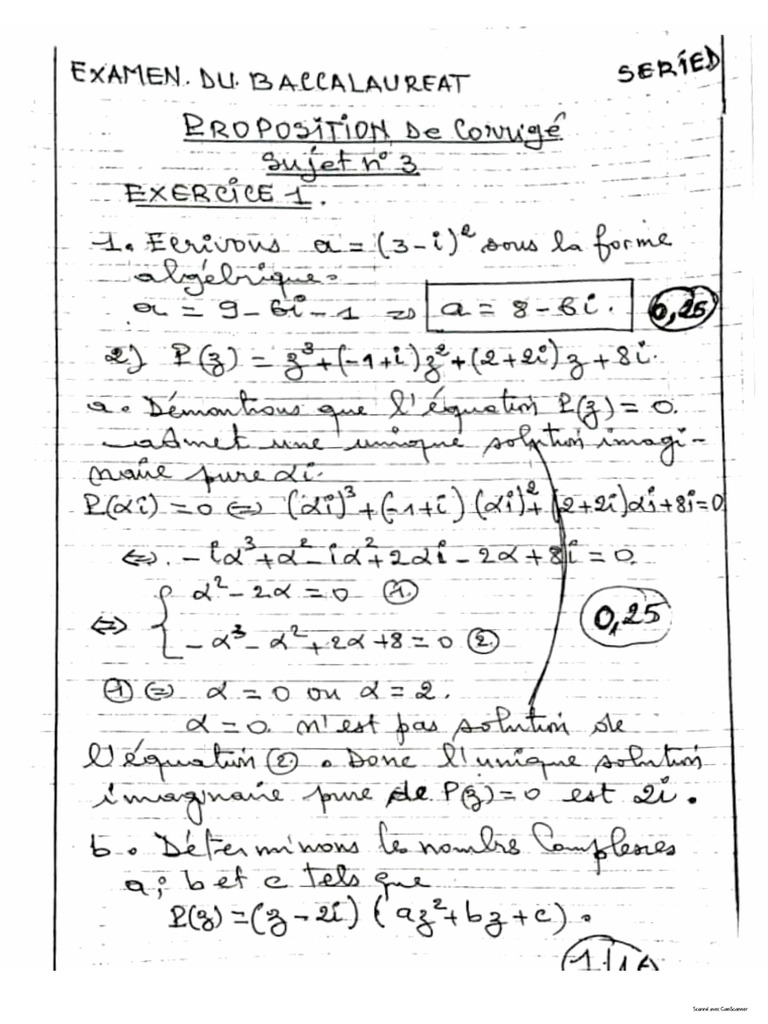 EXAMEN. DU. BACCALAUREAT SERIED
PROPOSITION De Corrigé
Sujet n° 3
EXERCICE 1.
1. Ecrivons a = (3-i)² sous la forme
algébrique.
a = 9-6i-1 => a = 8-6i. 0,25
2) P(z) = z³+(-1+i)z²+(2+2i)z+8i.
a. Démontrons que l'équation P(z) = 0.
admet une unique solution imagi-
naire pure αi.
P(αi) = 0 ⇔ (αi)³+(-1+i)(αi)²+(2+2i)αi+8i=0
⇔. -iα³+α²-iα²+2αi-2α+8i=0.
α²-2α=0 ①
⇔ { 0,25
-α³-α²+2α+8=0 ②
① ⇔ α=0 ou α=2.
α=0. n'est pas solution de
l'équation ②. Donc l'unique solution
imaginaire pure de P(z)=0 est 2i.
b. Déterminons les nombres Complexes
a; b et c tels que
P(z)=(z-2i)(az²+bz+c).
Scanné avec CamScanner